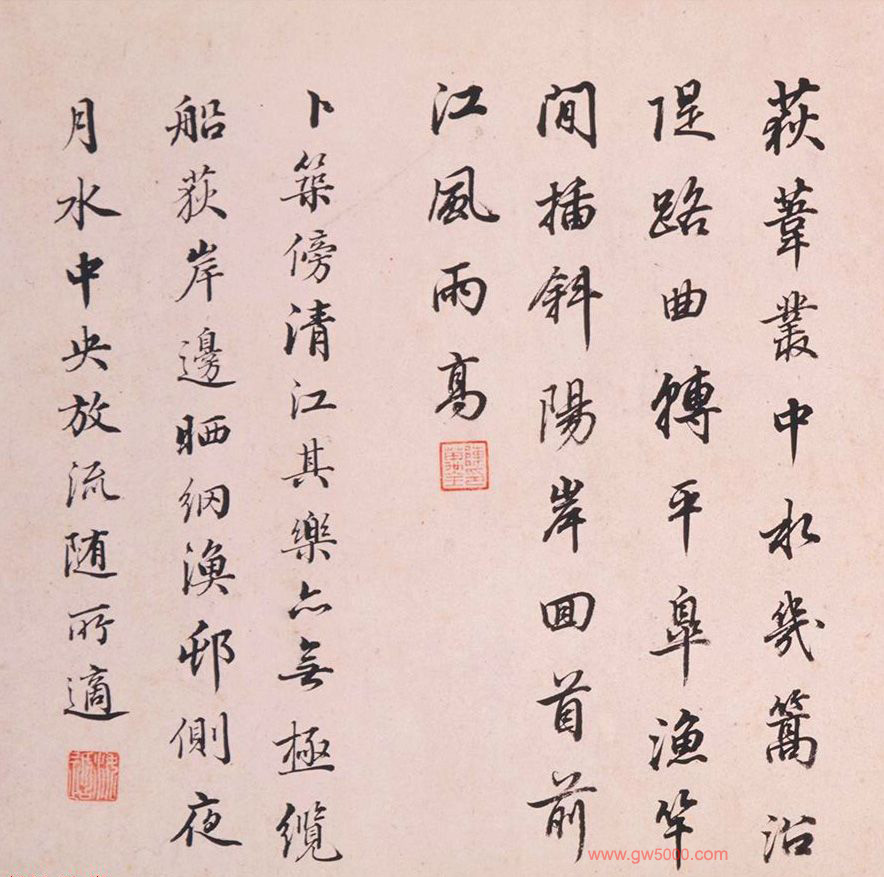 荻葦叢中水幾篙沿
隄路曲轉平皋漁竿
閒插斜陽岸回首前
江風雨高
卜築傍清江其樂亦無極纜
船荻岸邊晒網漁邨側夜
月水中央放流随所適
www.gw5000.com